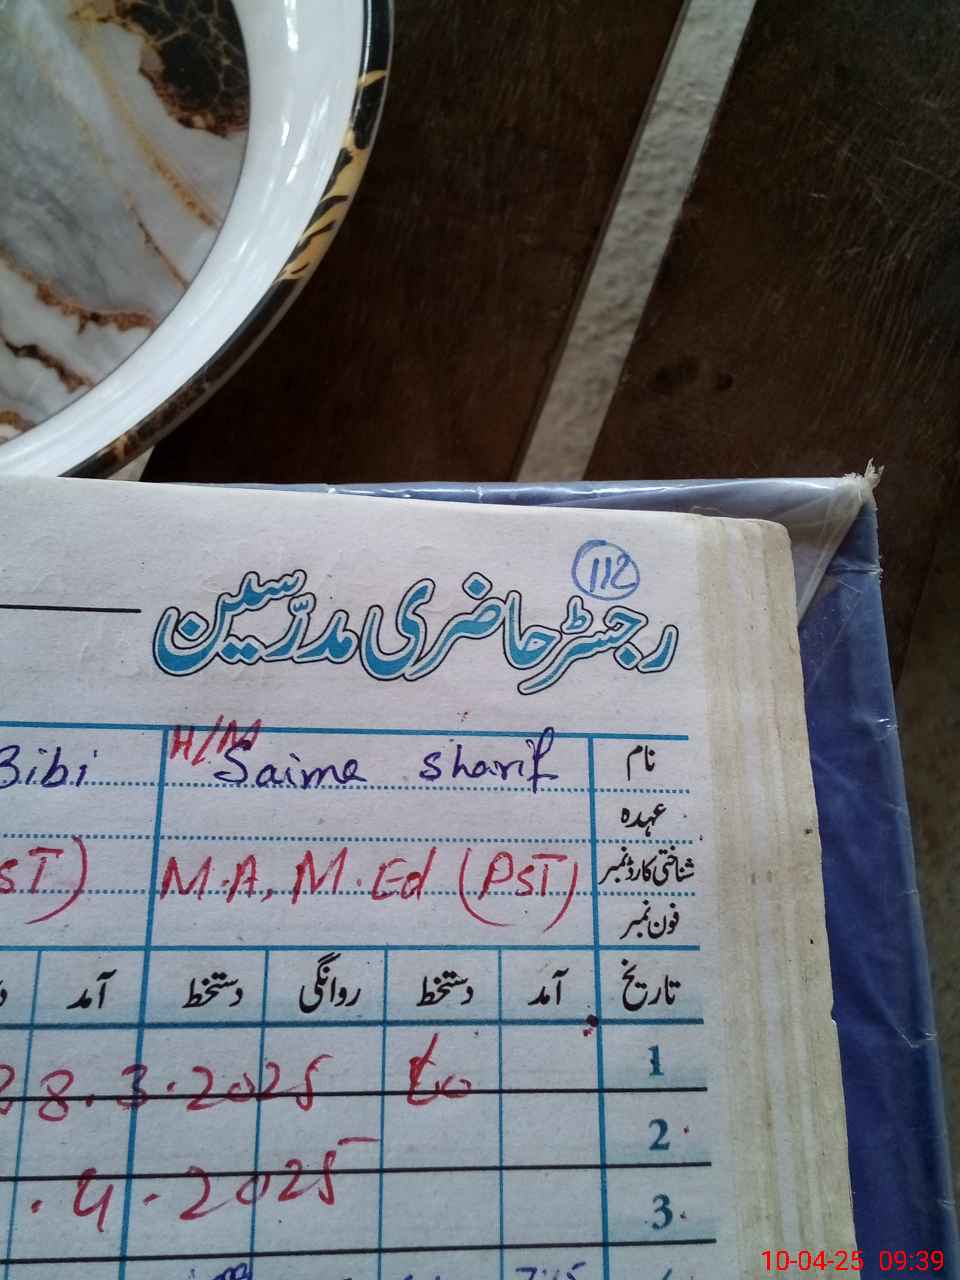 112
رجسٹر حاضری مدرّسین
نام H/M Saima Sharif Bibi
عہدہ
شناختی کارڈ نمبر M.A, M.Ed (PST)
فون نمبر
تاریخ آمد دستخط روانگی دستخط آمد
1 28.3.2025 to
2
3 .4.2025
10-04-25 09:39